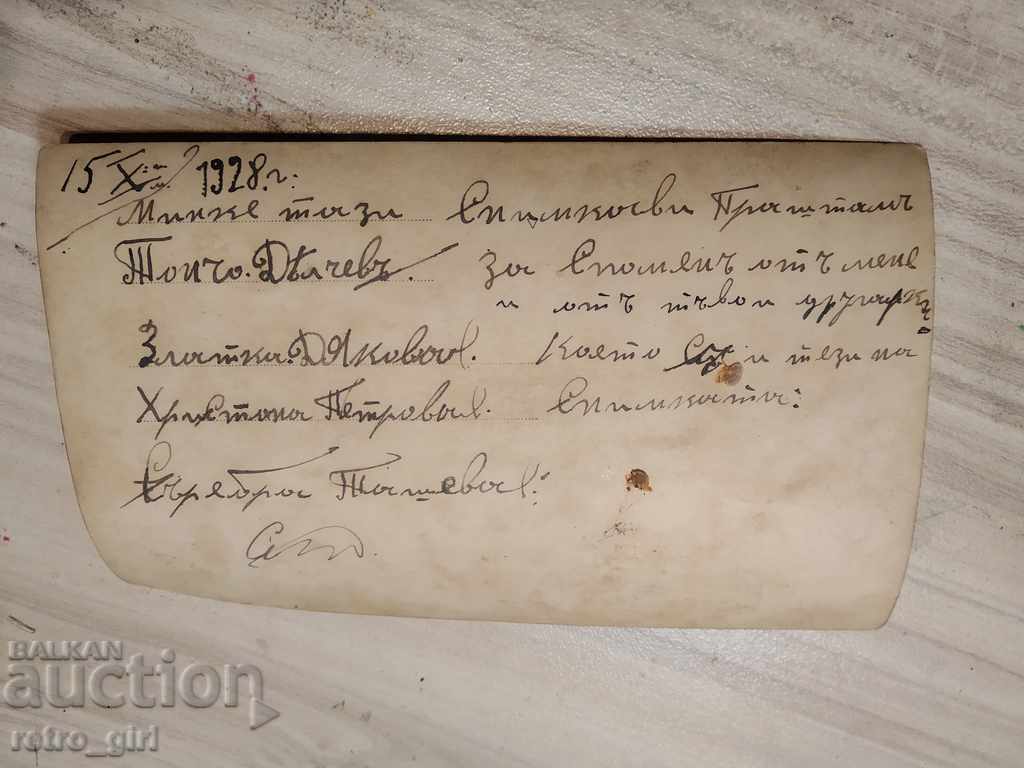 15 XII 1928 г.
Минке тази Снимка ви Праштамъ
Тончо. Дѣлчевъ. за Споменъ отъ мене
и отъ твои другарки
Златка. Дякова. Която са и тези на
Христана Петрова. Снимката:
Съребра Ташева:
BALKAN
auction
retro_girl